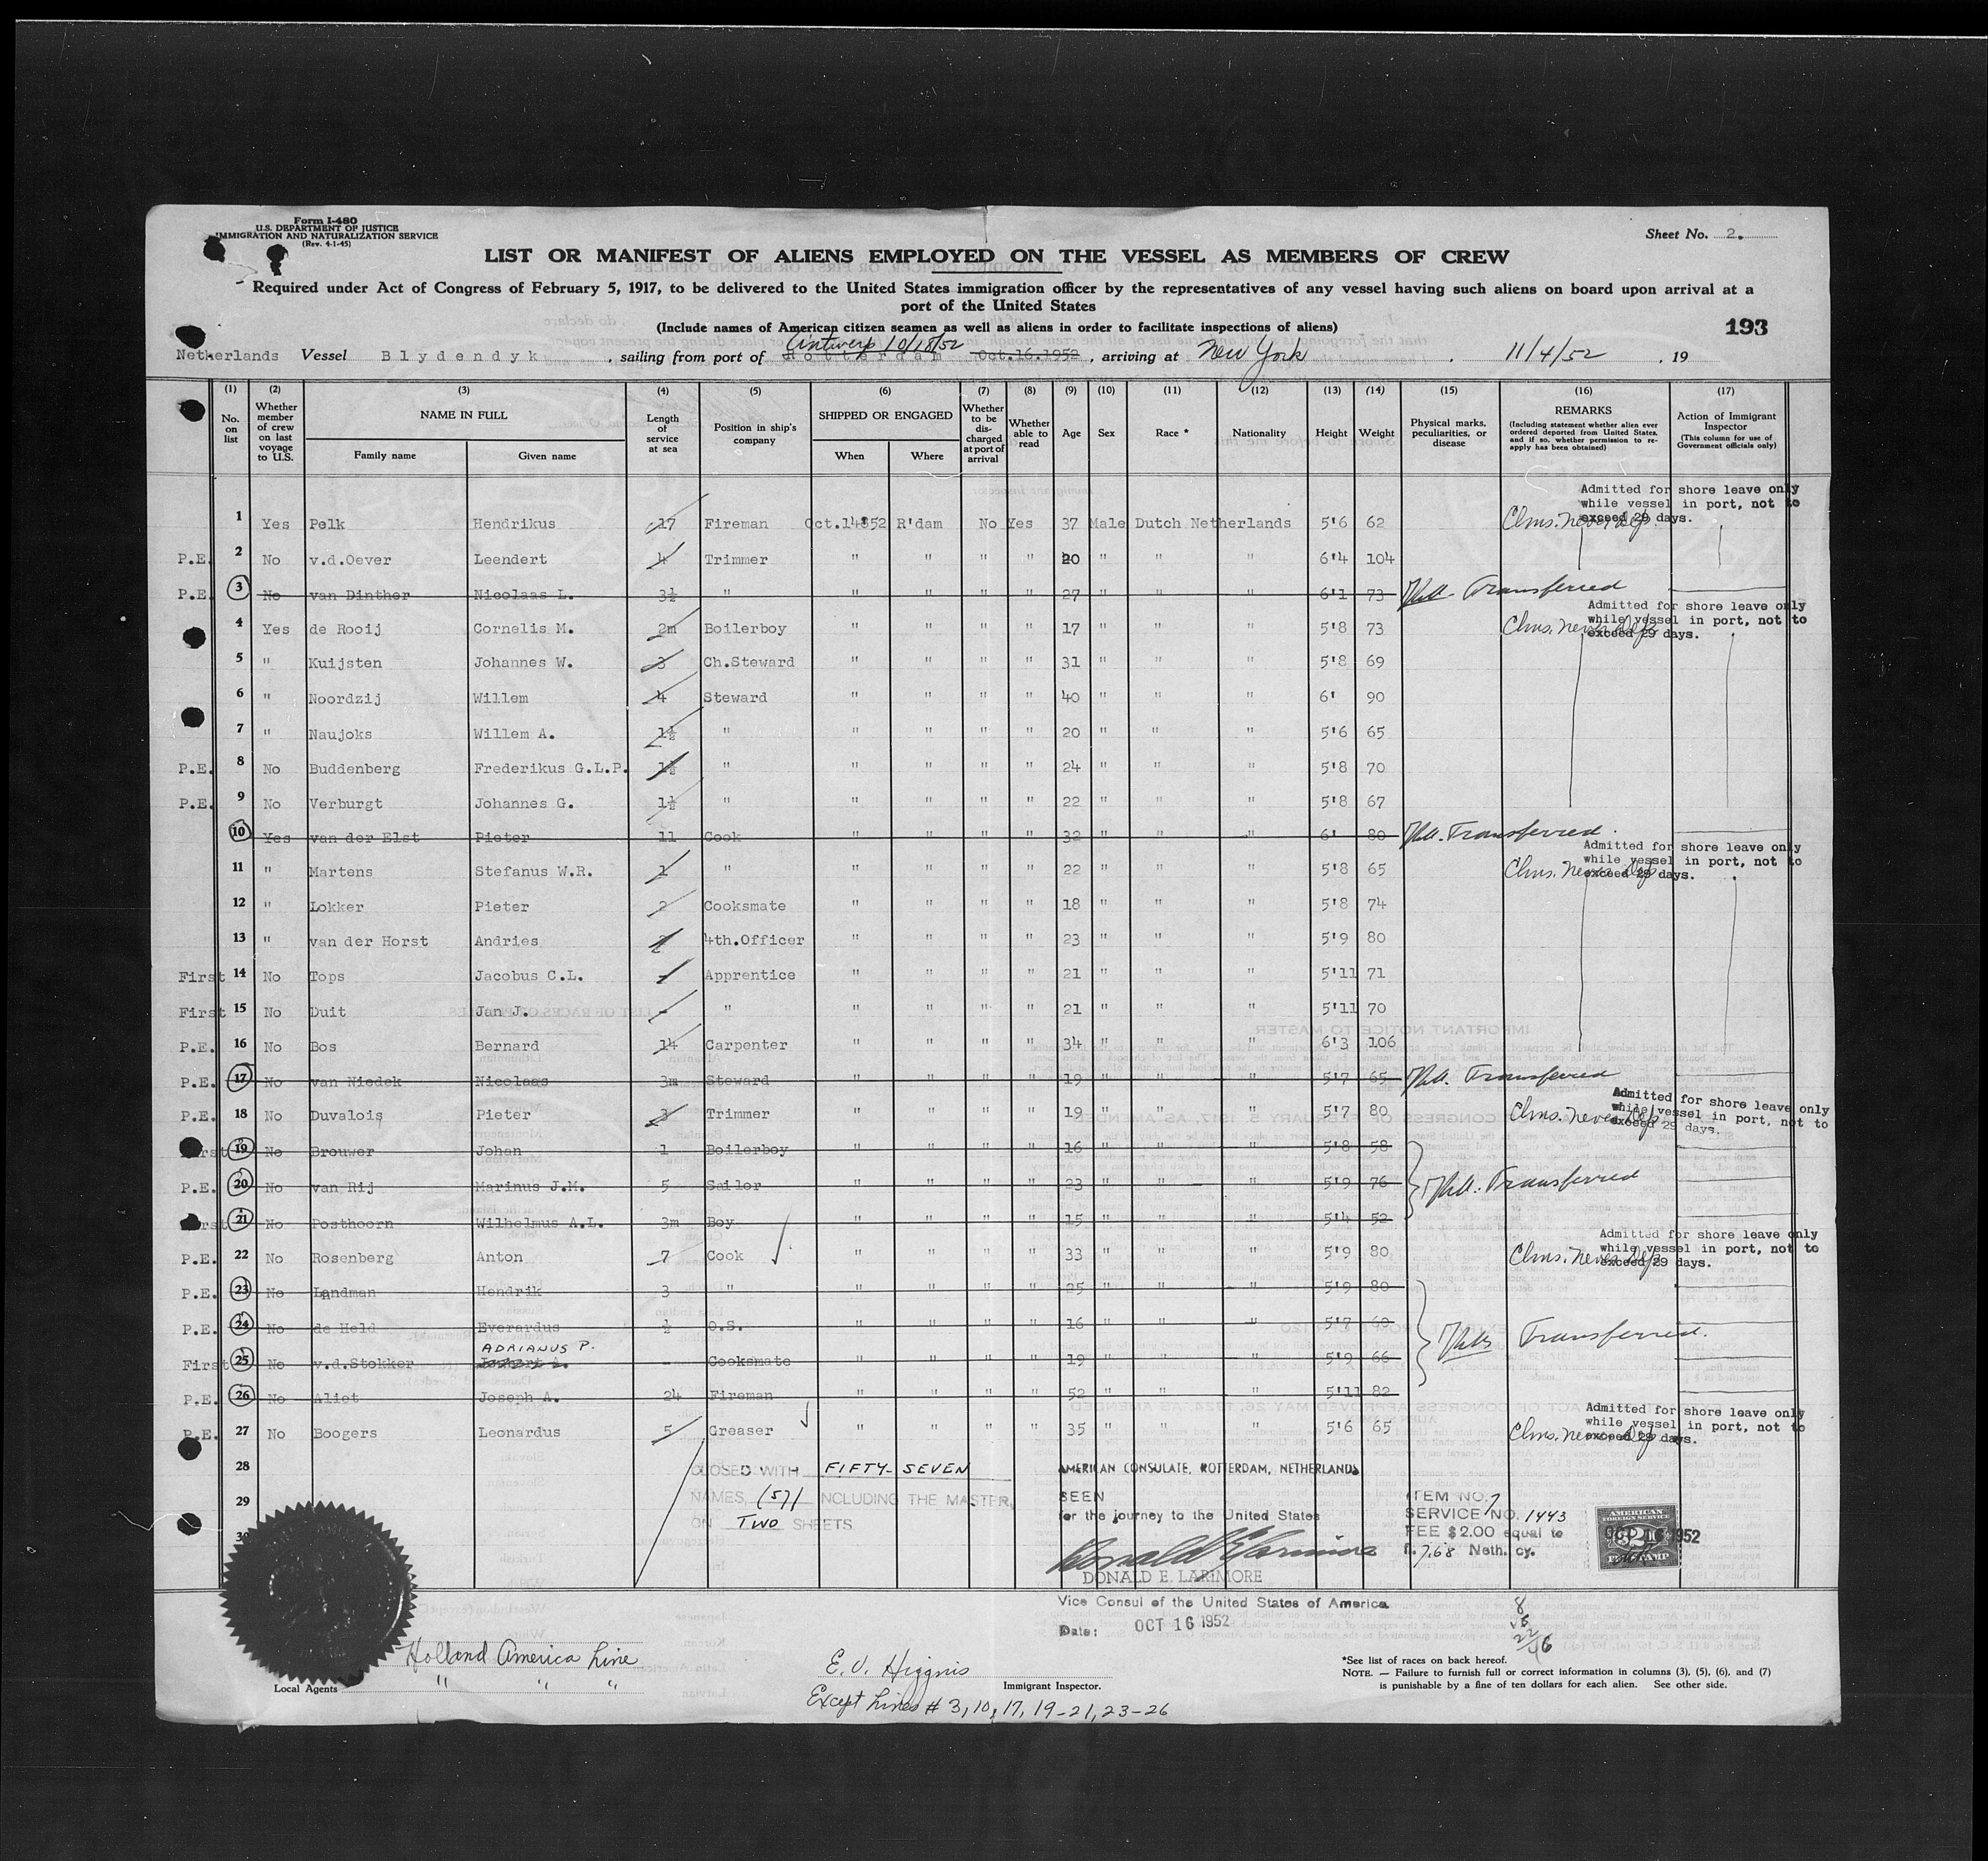 Form I-480
U.S. DEPARTMENT OF JUSTICE
IMMIGRATION AND NATURALIZATION SERVICE
(Rev. 4-1-45)
Sheet No. 2.
LIST OR MANIFEST OF ALIENS EMPLOYED ON THE VESSEL AS MEMBERS OF CREW
Required under Act of Congress of February 5, 1917, to be delivered to the United States immigration officer by the representatives of any vessel having such aliens on board upon arrival at a
port of the United States
(Include names of American citizen seamen as well as aliens in order to facilitate inspections of aliens)
193
Antwerp 10/18/52
Netherlands Vessel Blydendyk, sailing from port of Rotterdam Oct.16.1952, arriving at New York, 11/4/52, 19
(1) (2) (3) (4) (5) (6) (7) (8) (9) (10) (11) (12) (13) (14) (15) (16) (17)
No. on list
Whether member of crew on last voyage to U.S.
NAME IN FULL
Family name Given name
Length of service at sea
Position in ship's company
SHIPPED OR ENGAGED
When Where
Whether to be discharged at port of arrival
Whether able to read
Age Sex Race * Nationality Height Weight
Physical marks, peculiarities, or disease
REMARKS
(Including statement whether alien ever ordered deported from United States, and if so, whether permission to re-apply has been obtained)
Action of Immigrant Inspector
(This column for use of Government officials only)
Admitted for shore leave only
while vessel in port, not to
exceed 29 days.
1 Yes Pelk Hendrikus 17 Fireman Oct.14852 R'dam No Yes 37 Male Dutch Netherlands 5'6 62 Clms. never Dep.
P.E. 2 No v.d.Oever Leendert 4 Trimmer " " " " 20 " " " 6'4 104
P.E. 3 No van Dinther Nicolaas L. 3½ " " " " " 27 " " " 6'1 73 Transferred
Admitted for shore leave only
while vessel in port, not to
exceed 29 days.
4 Yes de Rooij Cornelis M. 2m Boilerboy " " " " 17 " " " 5'8 73 Clms. never Dep
5 " Kuijsten Johannes W. 3 Ch.Steward " " " " 31 " " " 5'8 69
6 " Noordzij Willem 4 Steward " " " " 40 " " " 6' 90
7 " Naujoks Willem A. 1½ " " " " " 20 " " " 5'6 65
P.E. 8 No Buddenberg Frederikus G.L.P. 1½ " " " " " 24 " " " 5'8 70
P.E. 9 No Verburgt Johannes G. 1½ " " " " " 22 " " " 5'8 67
10 Yes van der Elst Pieter 11 Cook " " " " 32 " " " 6' 80 Transferred
Admitted for shore leave only
while vessel in port, not to
exceed 29 days.
11 " Martens Stefanus W.R. 1 " " " " " 22 " " " 5'8 65 Clms. never Dep
12 " Lokker Pieter 2 Cooksmate " " " " 18 " " " 5'8 74
13 " van der Horst Andries 4th.Officer " " " " 23 " " " 5'9 80
First 14 No Tops Jacobus C.L. - Apprentice " " " " 21 " " " 5'11 71
First 15 No Duit Jan J. - " " " " " 21 " " " 5'11 70
P.E. 16 No Bos Bernard 14 Carpenter " " " " 34 " " " 6'3 106
P.E. 17 No van Niedek Nicolaas 3m Steward " " " " 19 " " " 5'7 65 Transferred
Admitted for shore leave only
while vessel in port, not to
exceed 29 days.
P.E. 18 No Duvalois Pieter 3 Trimmer " " " " 19 " " " 5'7 80 Clms. never Dep
First 19 No Brouwer Johan 1 Boilerboy " " " " 16 " " " 5'8 58
P.E. 20 No van Rij Marinus J.M. 5 Sailor " " " " 23 " " " 5'9 76 Transferred
First 21 No Posthoorn Wilhelmus A.L. 3m Boy " " " " 15 " " " 5'4 52
Admitted for shore leave only
while vessel in port, not to
exceed 29 days.
P.E. 22 No Rosenberg Anton 7 Cook " " " " 33 " " " 5'9 80 Clms. never Dep
P.E. 23 No Landman Hendrik 3 " " " " " 25 " " " 5'9 80
P.E. 24 No de Held Everardus ½ O.S. " " " " 16 " " " 5'7 60 Transferred.
ADRIANUS P.
First 25 No v.d.Stokker - Cooksmate " " " " 19 " " " 5'9 66
P.E. 26 No Aliet Joseph A. 24 Fireman " " " " 52 " " " 5'11 82
Admitted for shore leave only
while vessel in port, not to
exceed 29 days.
P.E. 27 No Boogers Leonardus 5 Greaser " " " " 35 " " " 5'6 65 Clms. never Dep
28 CLOSED WITH FIFTY-SEVEN
29 NAMES, (57) INCLUDING THE MASTER,
30 ON TWO SHEETS
AMERICAN CONSULATE, ROTTERDAM, NETHERLANDS
SEEN
for the journey to the United States
Donald E. Larimore
DONALD E. LARIMORE
Vice Consul of the United States of America.
Date: OCT 16 1952
ITEM NO. 7
SERVICE NO. 1443
FEE $2.00 equal to
f. 7.68 Neth. cy.
AMERICAN
FOREIGN SERVICE
$2
FEE STAMP
OCT 16 1952
Holland America Line
Local Agents " " "
E. V. Higgins
Immigrant Inspector.
Except Lines # 3, 10, 17, 19-21, 23-26
*See list of races on back hereof.
NOTE. — Failure to furnish full or correct information in columns (3), (5), (6), and (7)
is punishable by a fine of ten dollars for each alien. See other side.